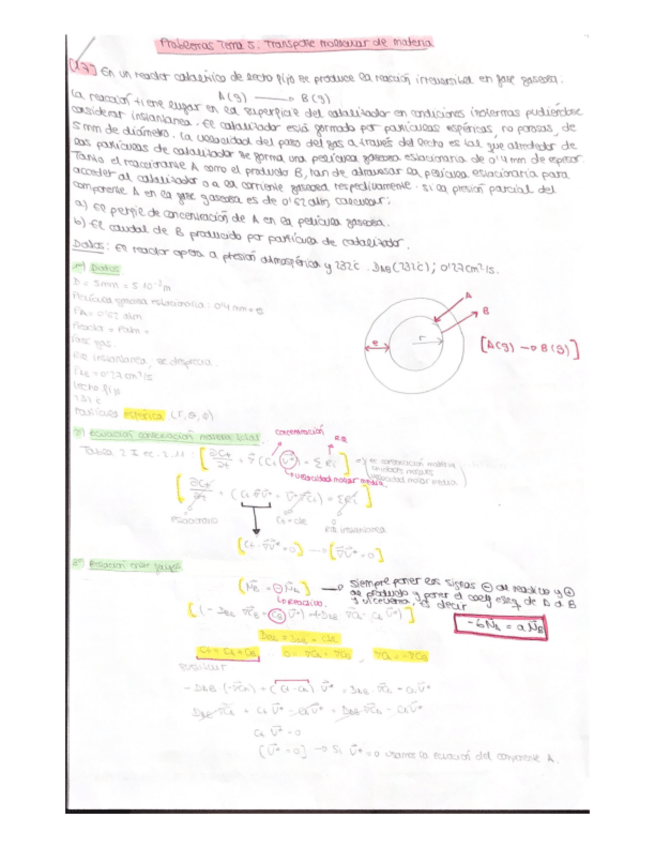 Problemas Tema 5. Transporte molecular de materia
17 En un reactor catalítico de lecho fijo se produce la reacción irreversible en fase gaseosa.
A(g) → B(g)
La reacción tiene lugar en la superficie del catalizador en condiciones isotermas pudiéndose
considerar instantánea. El catalizador está formado por partículas esféricas, no porosas, de
5 mm de diámetro. La velocidad del paso del gas a través del lecho es tal que alrededor de
las partículas de catalizador se forma una película gaseosa estacionaria de 0'4 mm de espesor
Tanto el reaccionante A como el producto B, han de atravesar la película estacionaria para
acceder al catalizador o a la corriente gaseosa respectivamente. Si la presión parcial del
componente A en la fase gaseosa es de 0'67 atm calcular:
a) El perfil de concentración de A en la película gaseosa.
b) El caudal de B producido por partícula de catalizador.
Datos: El reactor opera a presión atmosférica y 232°C. DAB (232°C); 0'27 cm²/s.
1º) Datos
D = 5mm = 5·10⁻³m
Película gaseosa estacionaria: 0'4mm = e
PA = 0'67 atm
Preactor = Patm =
Fase gas.
RQ instantánea, se desprecia.
DAB = 0'27 cm²/s
Lecho fijo
232°C
Partículas esférica (r, θ, φ)
A
B
r
e
[A(g) → B(g)]
2º) Ecuación conservación materia total.
concentración
RQ
velocidad molar media
ec conservación materia
unidades molares
velocidad molar media
estacionario
Ct = cte
RQ instantánea
[Ct · ∇V* = 0] → [∇V* = 0]
3º) Relación entre flujos
(NB = -NA) → Siempre poner los signos ⊖ al reactivo y ⊕
al producto y poner el coef esteq de A al B
y viceversa, es decir
-bNA = aNB
DAB = DBA = cte
Ct = CA + CB
0 = ∇CA + ∇CB, ∇CA = -∇CB
Sustituir
Ct V* = 0
[V* = 0] → Si V* = 0 usamos la ecuación del componente A.